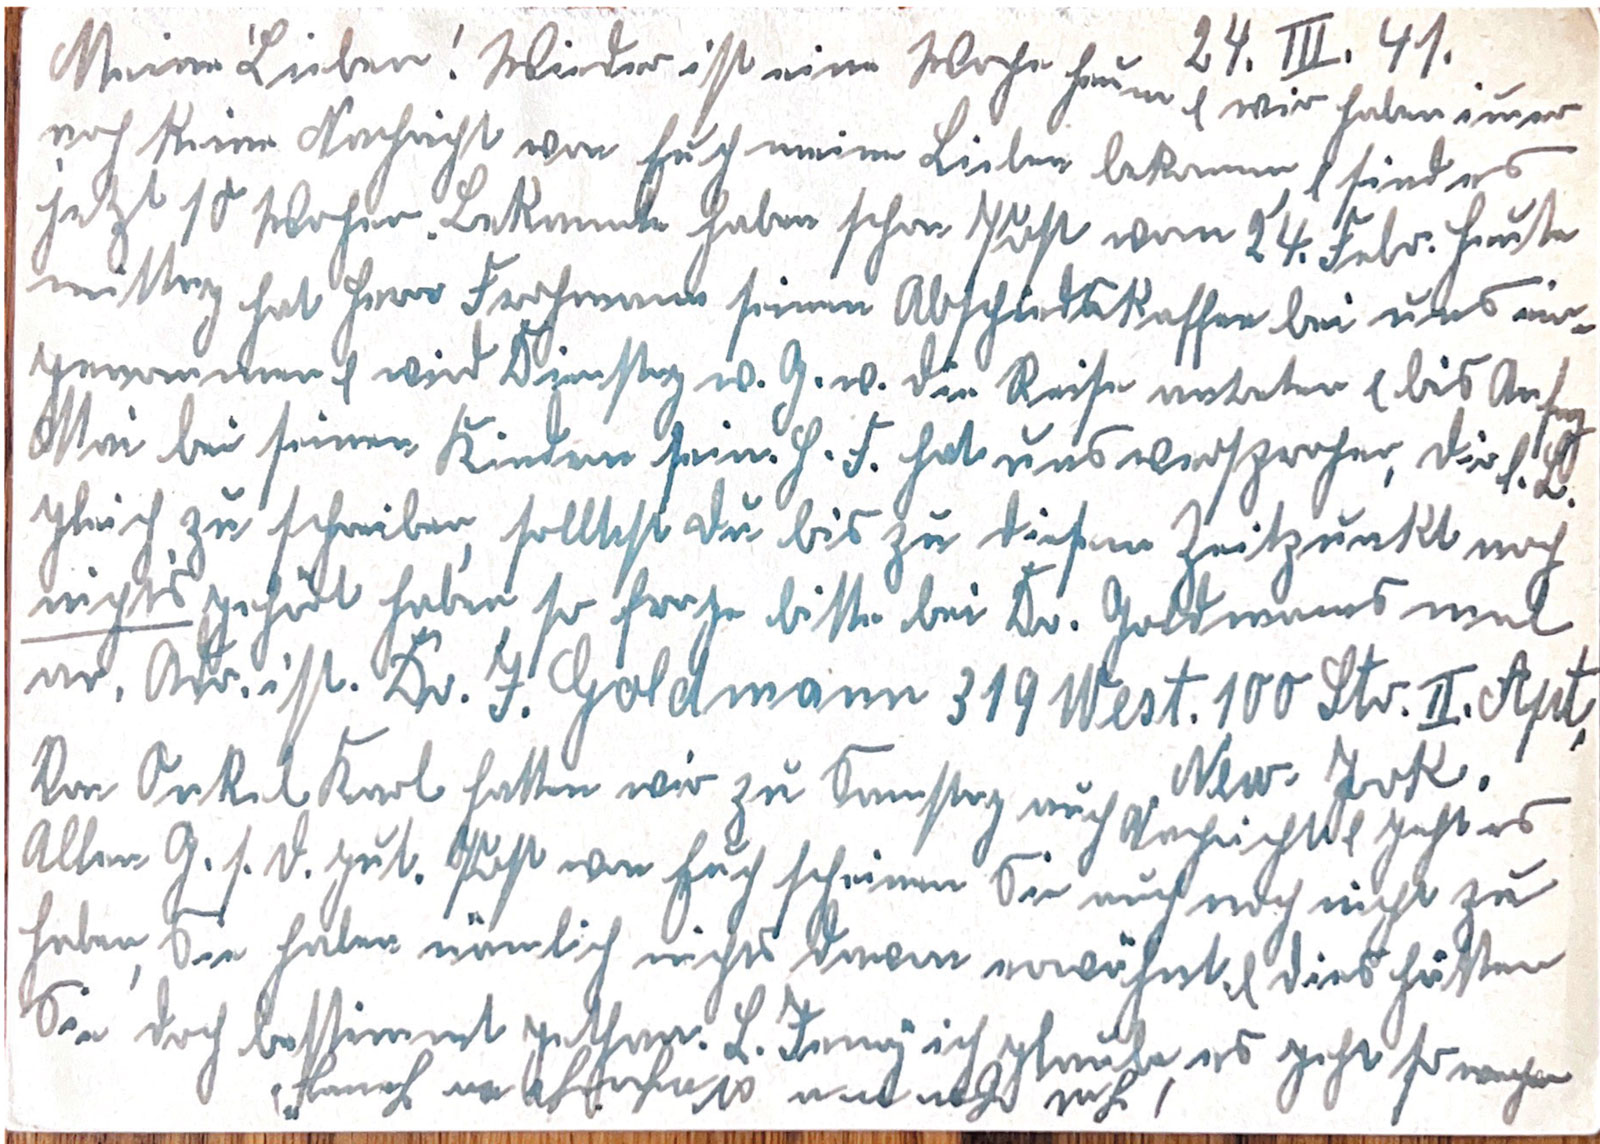 24. III. 41.
Meine Lieben! Wieder ist eine Woche herum & wir haben immer
noch keine Nachricht von Euch meine Lieben bekommen, & sind es
jetzt 10 Wochen. Bekannte haben schon Post vom 24. Febr. Heute
mittag hat Herr Frohmann seinen Abschiedskaffee bei uns ein-
genommen & wird Dienstag w. G. w. die Reise antreten & bis Anfag
Mai bei seinen Kindern sein. H. F. hat uns versprochen, Dir l. L.
gleich zu schreiben, solltest Du bis zu diesem Zeitpunkt noch
nichts gehört haben, so frage bitte bei Dr. Goldmanns mal
an. Adr. ist. Dr. J. Goldmann 319 West. 100 Str. II. Apt,
New. York.
Von Onkel Karl hatten wir zu Samstag auch Nachricht & geht es
Allen G. s. D. gut. Post von Euch scheinen Sie auch noch nicht zu
haben, Sie haben nämlich nichts davon erwähnt, & dies hätten
Sie doch bestimmt gethan. L. Jenny ich glaube, es geht so wegen